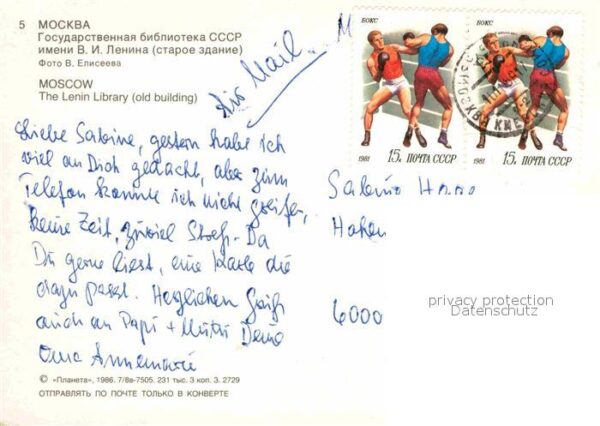 5 МОСКВА
Государственная библиотека СССР
имени В. И. Ленина (старое здание)
Фото В. Елисеева
MOSCOW
The Lenin Library (old building)
Air Mail
M
БОКС
1981 15к ПОЧТА СССР
БОКС
1981 15к ПОЧТА СССР
МОСКВА
Liebe Sabine, gestern habe ich
viel an Dich gedacht, aber zum
Telefon konnte ich nicht greifen,
keine Zeit, zuviel Streß. Da
Du gerne liest, eine Karte die
dazu passt. Herzlichen Gruß
auch an Papi + Mutti Deine
Oma Annemarie
Sabine
6000
privacy protection
Datenschutz
© «Планета», 1986. 7/8а-7505. 231 тыс. 3 коп. З. 2729
ОТПРАВЛЯТЬ ПО ПОЧТЕ ТОЛЬКО В КОНВЕРТЕ